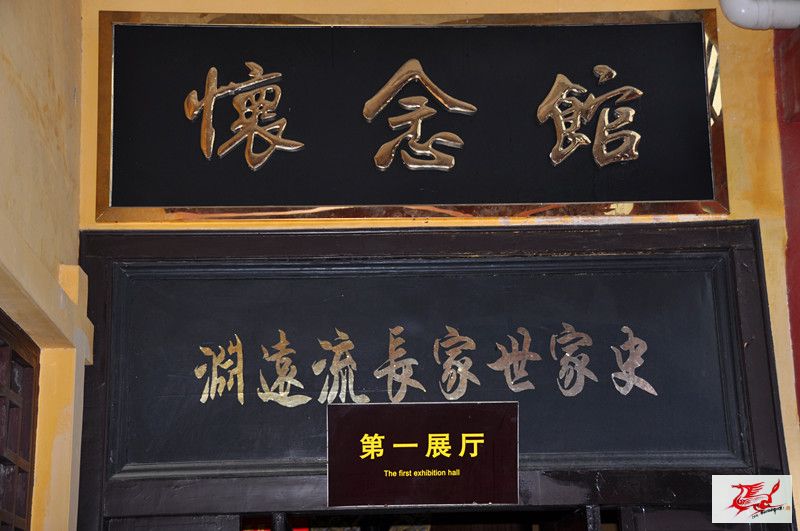 懷念館
淵遠流長家世家史
第一展厅
The first exhibition hall